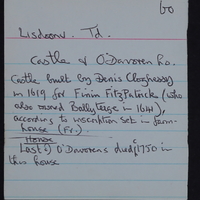 60
Lisdoonv. Td.
Castle & O'Davoren Ho.
Castle built by Denis Cloghessy
in 1619 for Finin FitzPatrick (who
also owned Ballyteige in 1641),
according to inscription set in farm-
house (Fr.).
House
Last O'Davorens died 1750 in
this house